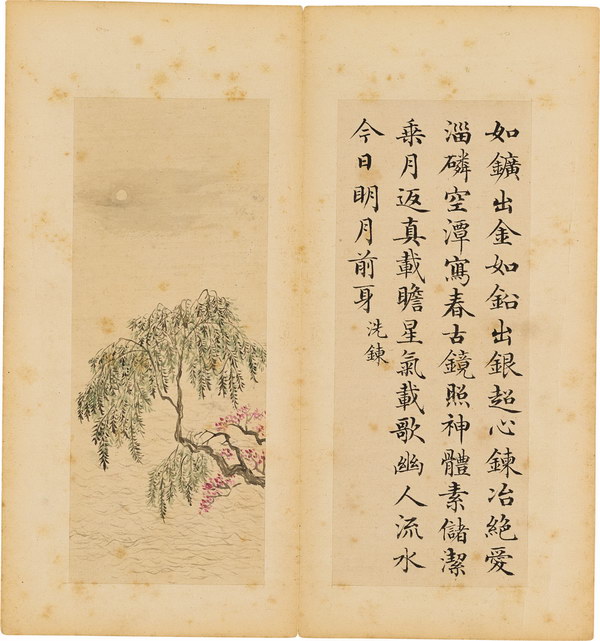 如鑛出金如鉛出銀超心鍊冶絕愛
淄磷空潭寫春古鏡照神體素儲潔
乘月返真載瞻星氣載歌幽人流水
今日明月前身
洗鍊